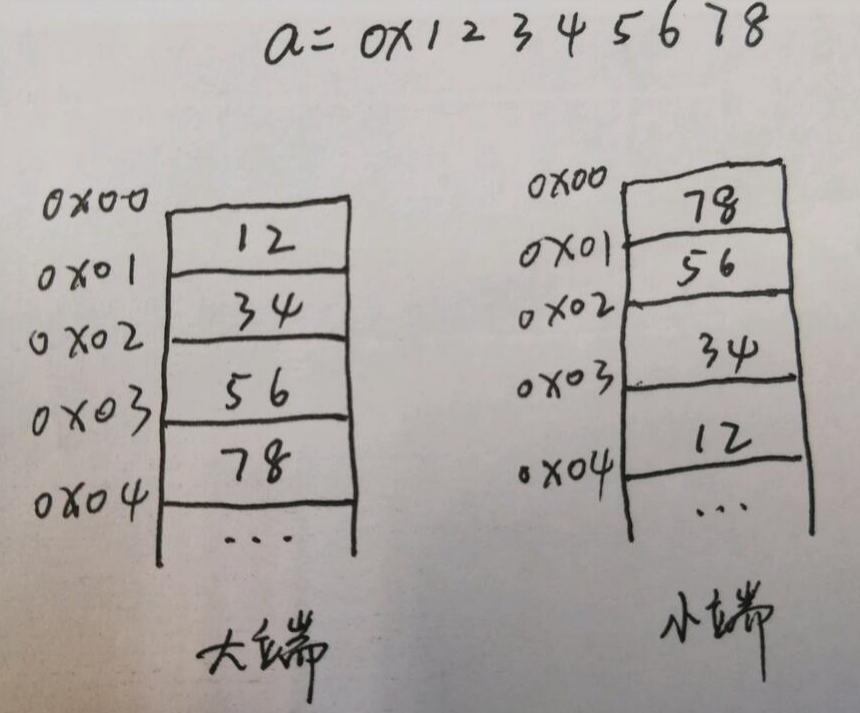 a = 0x12345678
0x00
12
0x01
34
0x02
56
0x03
78
0x04
...
大端
0x00
78
0x01
56
0x02
34
0x03
12
0x04
...
小端